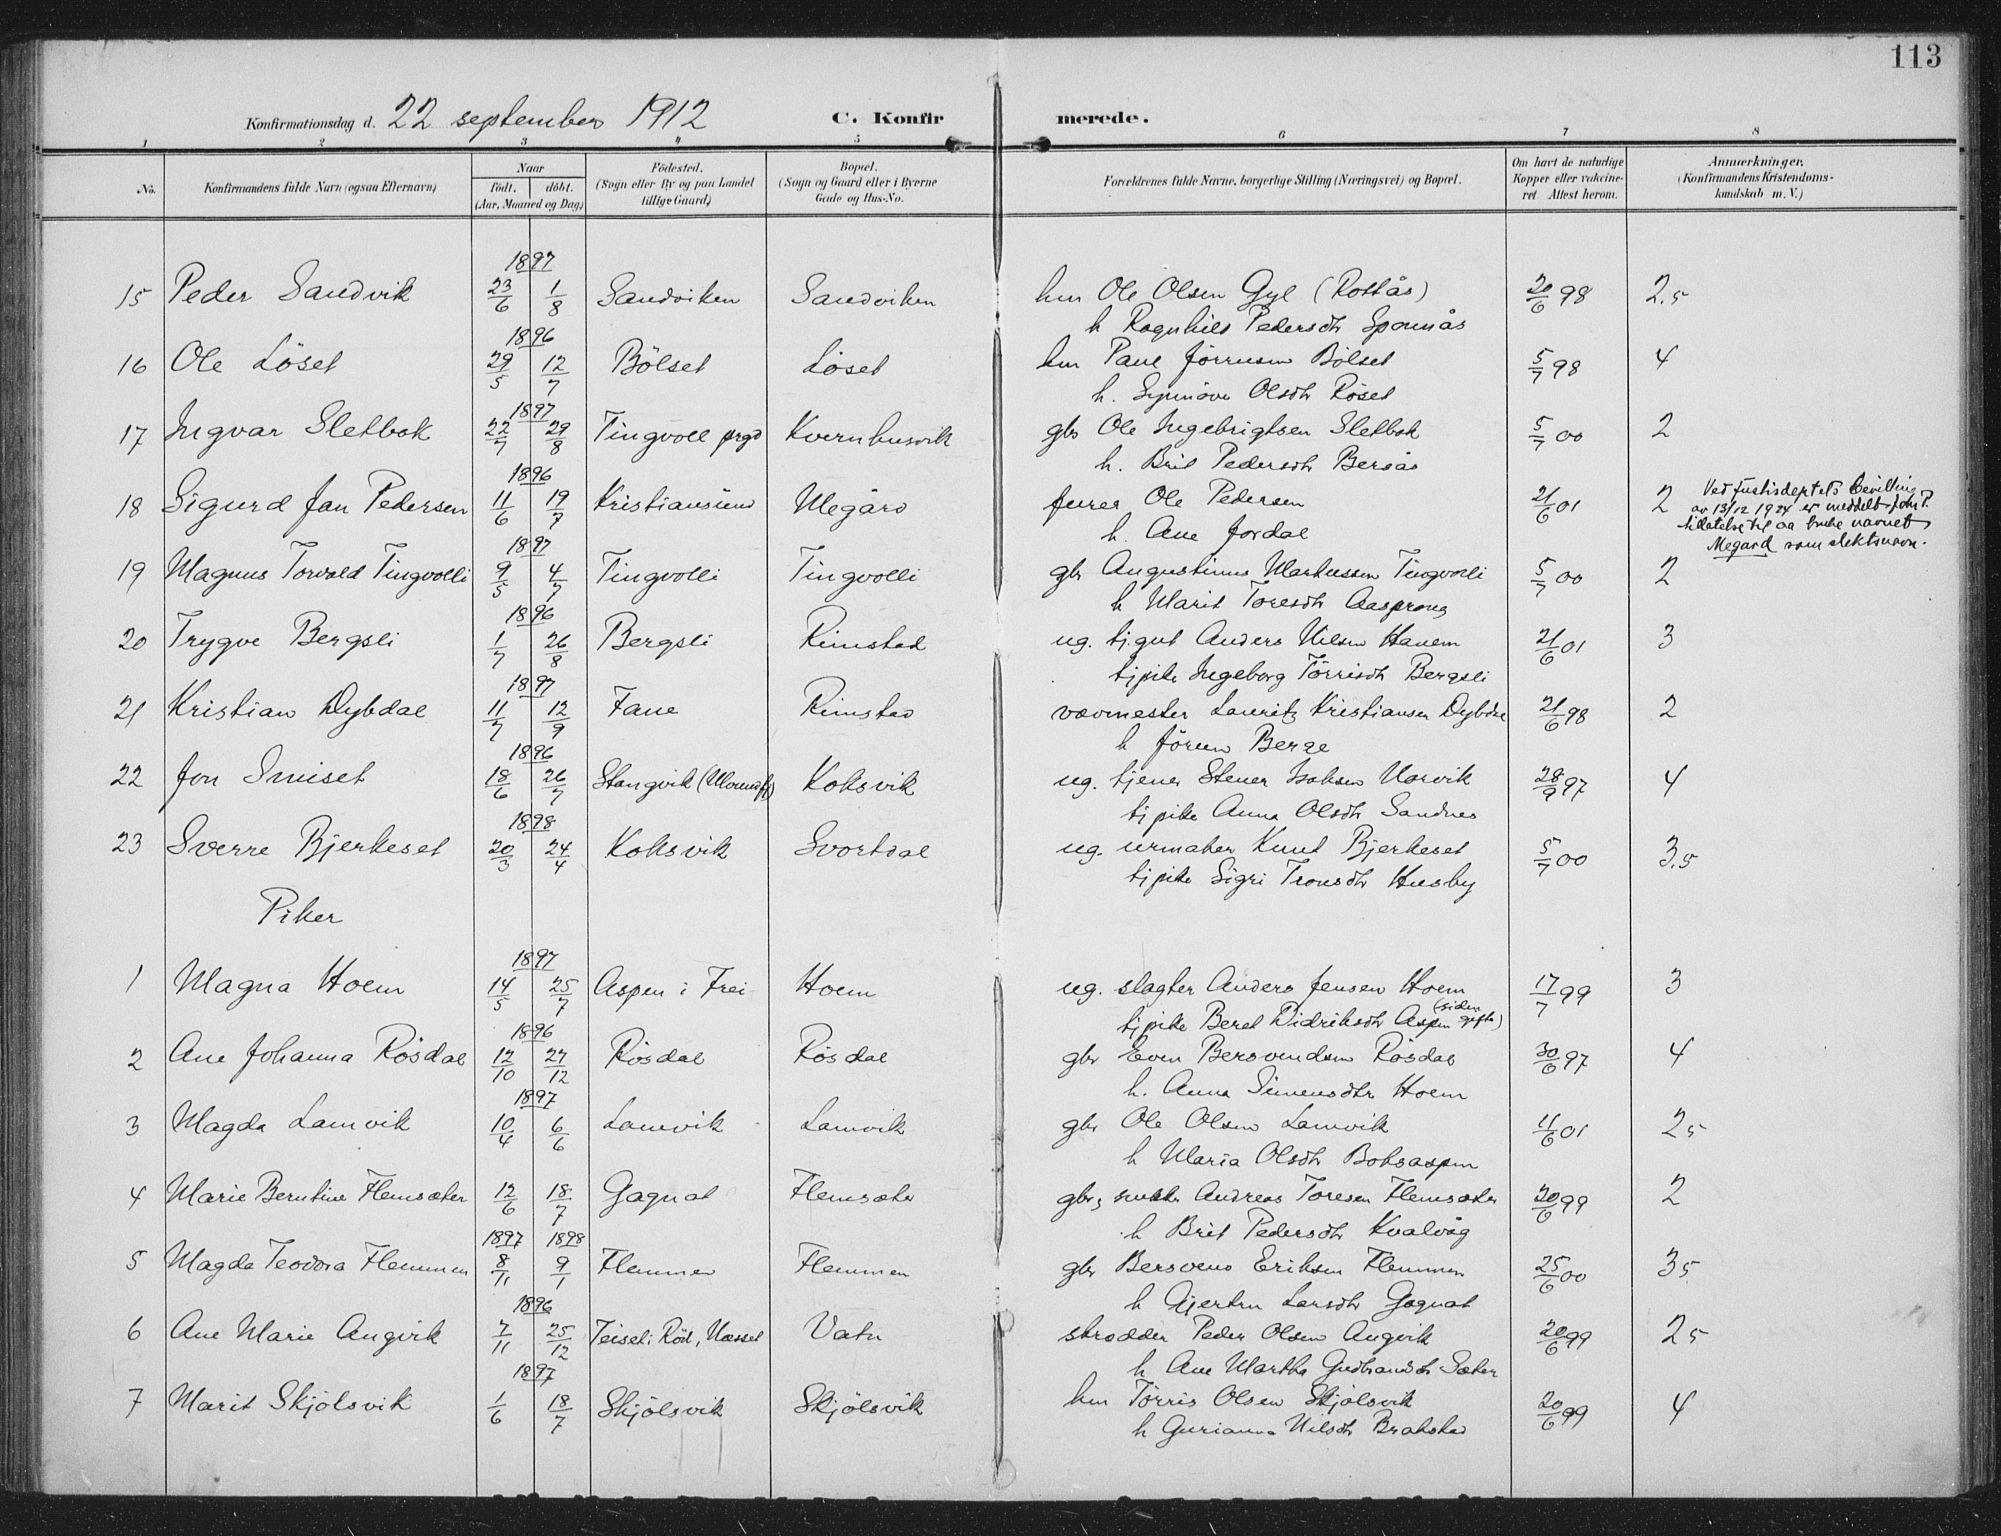 113
Konfirmationsdag d. 22 september 1912 C. Konfirmerede.
1 2 3 4 5 6 7 8
No. Konfirmandens fulde Navn (ogsaa Efternavn) Naar födt. döbt. (Aar, Maaned og Dag) Födested. (Sogn eller By og paa Landet tillige Gaard) Bopæl. (Sogn og Gaard eller i Byerne Gade og Hus-No. Forældrenes fulde Navne, borgerlige Stilling (Næringsvei) og Bopæl. Om havt de naturlige Kopper eller vakcineret. Attest herom. Anmærkninger. (Konfirmandens Kristendomskundskab m. V.)
1897
15 Peder Sandvik 23/6 1/8 Sandviken Sandviken hm Ole Olsen Gyl (Rottås) 20/6 98 2.5
h Ragnhild Pedersdtr
1896
16 Ole Löset 29/5 12/7 Bölset Löset hm 5/7 98 4
h. Synnöve Olsdtr Röset
1897
17 Ingvar Sletbak 22/7 29/8 Tingvoll prgd Kvernhusvik gbr Ole Ingebrigtsen Sletbak 5/7 00 2
h. Brit Pedersdtr Bersås
1896
18 Sigurd Jan Pedersen 11/6 19/7 Kristiansund Megård Ole Pedersen 21/6 01 2 Ved Justisdeptets bevilling
av 13/12 1924 er meddelt
tillatelse til aa bruke navnet
Megard som slektsnavn.
h. Ane Jordal
1897
19 Magnus Torvald Tingvolli 9/5 4/7 Tingvolli Tingvolli gbr Augustinus Markussen Tingvolli 5/7 00 2
h Marit Toresdtr Aasprong
1896
20 Trygve Bergsli 1/7 26/8 Bergsli Rimstad ug. tj.gut Anders Nilsen Hanem 21/6 01 3
tjpike Ingeborg Törrisdtr Bergsli
1897
21 Kristian Dybdal 11/7 12/9 Fane Rimstad vævmester Lauritz Kristiansen Dybdal 21/6 98 2
h Jörun Berge
1896
22 Jon Smiset 18/6 26/7 Stangvik Koksvik ug. tjener Stener Isaksen Narvik 28/9 97 4
tjpike Anna Olsdtr Sandnes
1898
23 Sverre Bjerkeset 20/3 24/4 Koksvik Svortdal ug. urmaker Knut Bjerkeset 5/7 00 3.5
tjpike Sigri Tronsdtr Husby
Piker
1897
1 Magna Hoem 14/5 25/7 Aspen i Frei Hoem ug. slagter Anders Jensen Hoem 17/7 99 3
tjpike Beret Didriksdtr Aspen (siden gifte)
1896
2 Ane Johanna Rösdal 12/10 27/12 Rösdal Rösdal gbr Even Bersvendsen Rösdal 30/6 97 4
h. Anna Simensdtr Hoem
1897
3 Magda Lamvik 10/4 6/6 Lamvik Lamvik gbr Ole Olsen Lamvik 11/6 01 2 5
h Maria Olsdtr Boksaspen
4 Marie Berntine Flemsæter 12/6 18/7 Gagnat Flemsæter gbr, Andreas Toresen Flemsæter 20/6 99 2
h Brit Pedersdtr Kvalvåg
1897 1898
5 Magda Teodora Flemmen 8/11 9/1 Flemmen Flemmen gbr Bersvend Eriksen Flemmen 25/6 00 3 5
h Gjertru Larsdtr Gagnat
1896
6 Ane Marie Angvik 7/11 25/12 Teiset i Röd, Næsset Vatn skrædder Peder Olsen Angvik 20/6 99 2 5
h Ane Martha Gudbrandsdtr Sæter
1897
7 Marit Skjölsvik 1/6 18/7 Skjölsvik Skjölsvik hm Törris Olsen Skjölsvik 20/6 99 4
h Gurianna Nilsdtr Brakstad